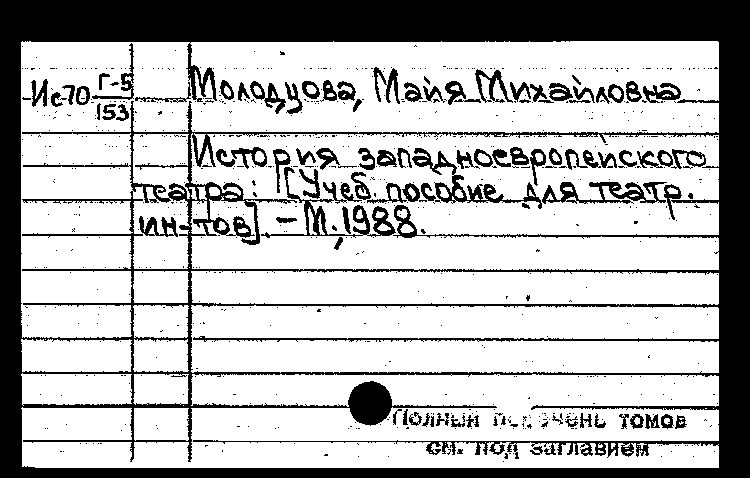 Ис70 Г-5/153 Молодцова, Майя Михайловна
История западноевропейского
театра: [Учеб. пособие для театр.
ин-тов]. – М., 1988.
Полный перечень томов
см. под заглавием